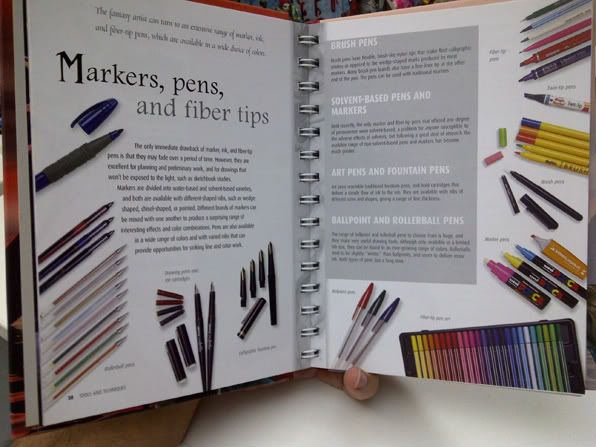 The fantasy artist can turn to an extensive range of marker, ink,
and fiber-tip pens, which are available in a wide choice of colors.
Markers, pens,
and fiber tips
The only immediate drawback of marker, ink, and fiber-tip
pens is that they may fade over a period of time. However, they are
excellent for planning and preliminary work, and for drawings that
won't be exposed to the light, such as sketchbook studies.
Markers are divided into water-based and solvent-based varieties,
and both are available with different-shaped nibs, such as wedge
shaped, chisel-shaped, or pointed. Different brands of markers can
be mixed with one another to produce a surprising range of
interesting effects and color combinations. Pens are also available
in a wide range of colors and with varied nibs that can
provide opportunities for striking line and color work.
Drawing pens and
ink cartridges
Calligraphic fountain pen
Rollerball pens
38 TOOLS AND TECHNIQUES
BRUSH PENS
Brush pens have flexible, brush-like nylon tips that make fluid calligraphic
strokes as opposed to the wedge-shaped marks produced by most
markers. Many brush pen brands also have a fine-liner tip at the other
end of the pen. The pens can be used with traditional markers.
SOLVENT-BASED PENS AND
MARKERS
Until recently, the only marker and fiber-tip pens that offered any degree
of permanence were solvent-based, a problem for anyone susceptible to
the adverse effects of solvents, but following a great deal of research the
available range of non-solvent-based pens and markers has become
much greater.
ART PENS AND FOUNTAIN PENS
Art pens resemble traditional fountain pens, and hold cartridges that
deliver a steady flow of ink to the nib. They are available with nibs of
different sizes and shapes, giving a range of line thickness.
BALLPOINT AND ROLLERBALL PENS
The range of ballpoint and rollerball pens to choose from is huge, and
they make very useful drawing tools. Although only available in a limited
nib size, they can be found in an ever-growing range of colors. Rollerballs
tend to be slightly "wetter" than ballpoints, and seem to deliver more
ink. Both types of pens last a long time.
Fiber-tip
pen
Twin-tip pens
Brush pens
Marker pens
Ballpoint pens
Fiber-tip pen set
POSCA